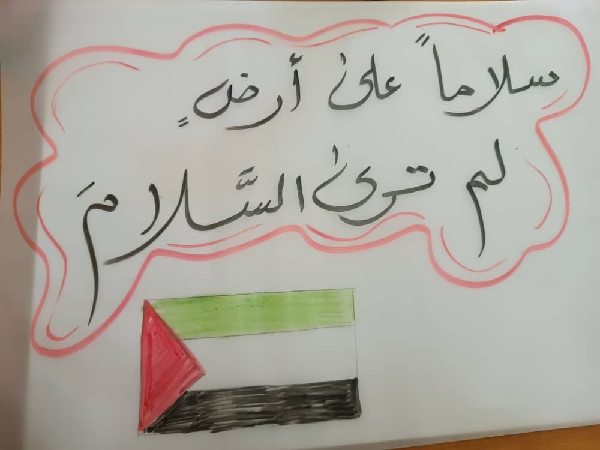 سلاماً على أرضٍ
لم ترى السَّلامَ